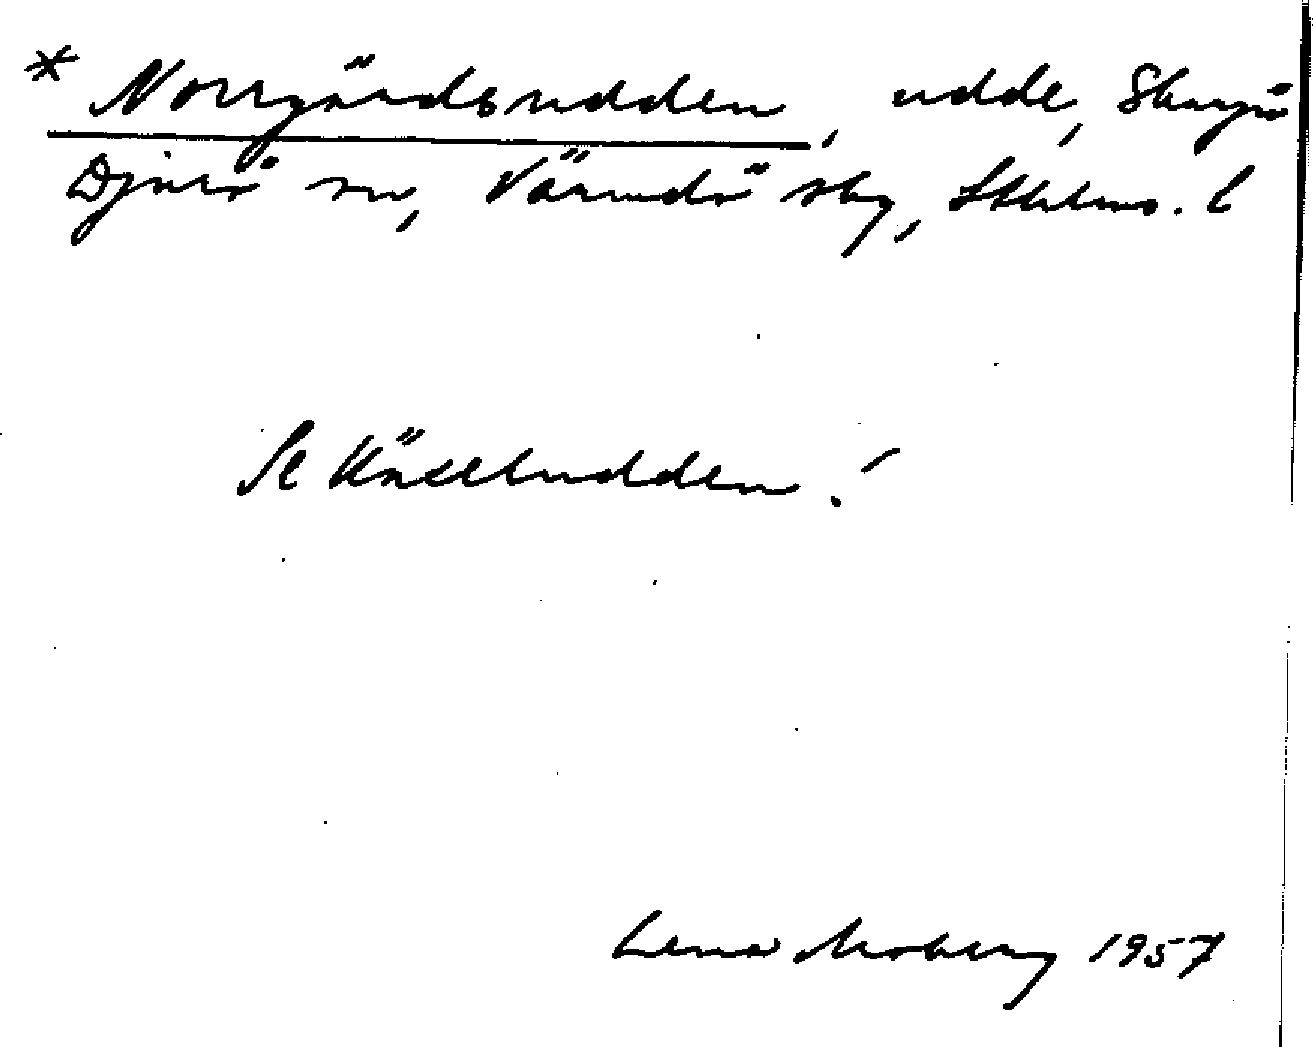 * Norrgårdsudden, udde, Skarpö
Djurö sn, Värmdö skg, Sthlms. l
Se Käxeludden!
Lena Moberg 1957